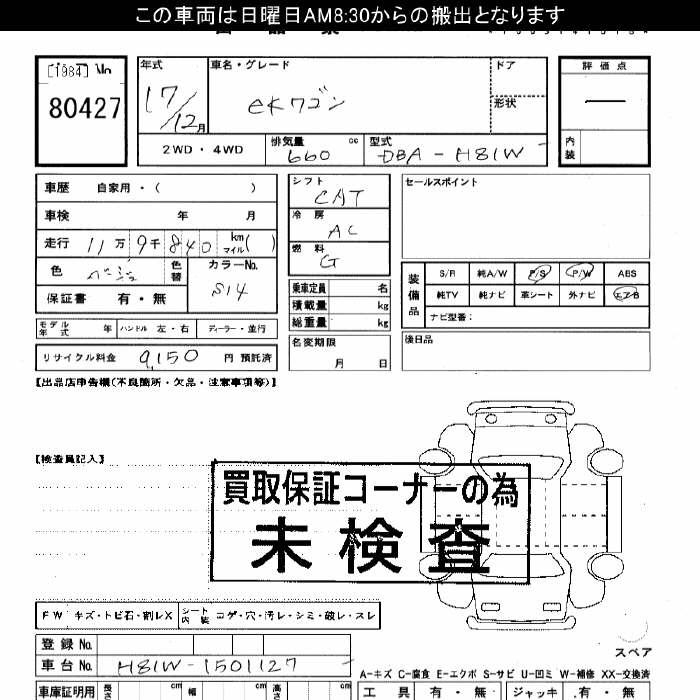 この車両は日曜日AM8:30からの搬出となります
[1984] No
80427
年式 車名・グレード ドア 評価点
17/12月 eKワゴン 形状 —
2WD・4WD 排気量 660 cc 型式 DBA-H81W 内装
車歴 自家用・( )
車検 年 月
走行 11万9千840 km マイル( )
色 ベージュ 色替 カラーNo. S14
保証書 有・無
モデル年式 年 ハンドル 左・右 ディーラー・並行
リサイクル料金 9,150 円 預託済
シフト CAT
冷房 AC
燃料 G
乗車定員 名
積載量 kg
総重量 kg
名変期限 月 日
セールスポイント
装備品 S/R 純A/W P/S P/W ABS
純TV 純ナビ 革シート 外ナビ エアB
ナビ型番:
後日品
【出品店申告欄(不良箇所・欠品・注意事項等)】
【検査員記入】
買取保証コーナーの為
未検査
FW キズ・トビ石・割レX シート内装 コゲ・穴・汚レ・シミ・破レ・スレ
スペア
登録No.
車台No. H81W-1501127
A-キズ C-腐食 E-エクボ S-サビ U-凹ミ W-補修 XX-交換済
車庫証明用 長さ cm 幅 cm 高さ cm 工具 有・無 ジャッキ 有・無